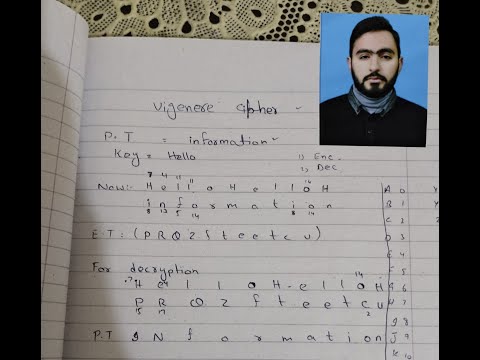 Vigenere Cipher
P.T = information
Key = Hello
1) Enc.
2) Dec
7 4 11 11 14
Now:- H e l l o H e l l o H
i n f o r m a t i o n
8 13 5 14 8 14
E.T: (P R Q Z f t e e t c u)
For decryption
14
H e l l o H e l l o H
P R Q Z f t e e t c u
15 17 2
P.T I N f o r m a t i o n
A 0
B 1
C 2
D 3
E 4
F 5
G 6
H 7
I 8
J 9
K 10